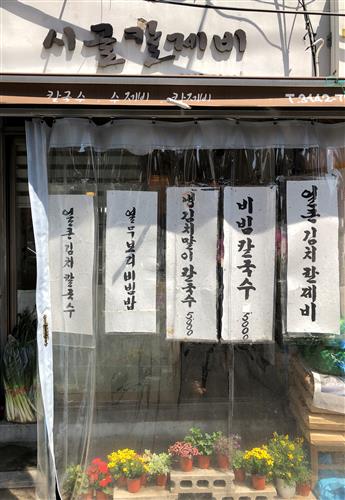 시골칼제비
칼국수 수제비 칼제비 T.3142-7
얼큰김치칼국수
열무보리비빔밥
냉김치말이칼국수 5,000
비빔칼국수 5,000
얼큰김치칼제비